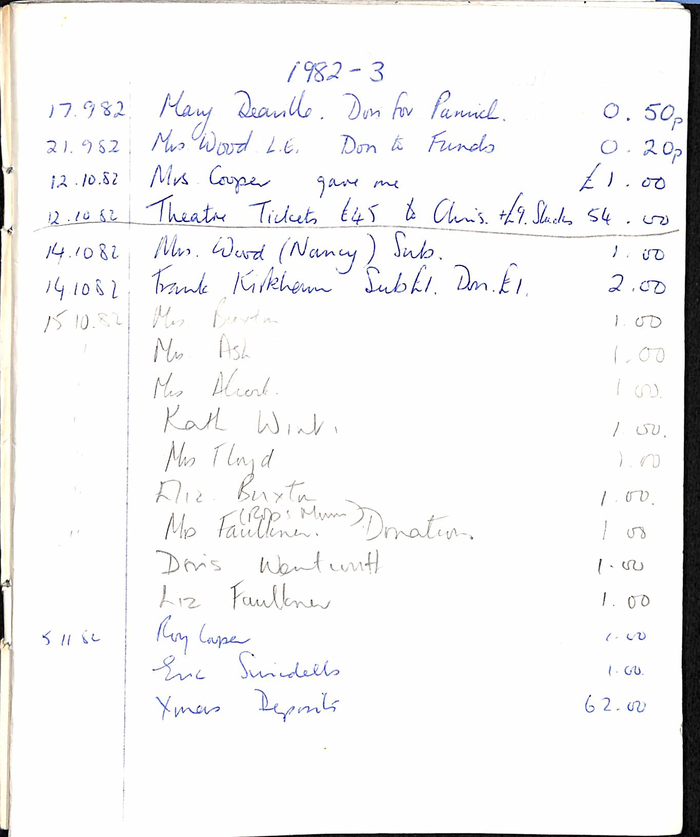 1982-3
17.9 82 Mary Deaville. Don for Pannick. 0. 50p
21.9 82 Mrs Wood L.E. Don to Funds 0. 20p
12.10.82 Mrs. Cooper gave me £1.00
12.10 82 Theatre Tickets £45 to Chris. +£9. 54.00
14.10 82 Mrs. Wood (Nancy) Sub. 1.00
14 10 82 Frank Kirkham Sub £1. Don. £1. 2.00
15 10.82 Mrs Buxton 1.00
Mrs Ash 1.00
Mrs 1 00.
Kath 1 00.
Mrs Floyd 1.00
Eliz. Buxton 1.00.
Mrs Faulkner. Donation. 1 00
Doris Wentworth 1.00
Liz Faulkner 1.00
5 11 82 Roy Cooper 1.00
Eric Swindells 1.00.
Xmas Deposits 62.00